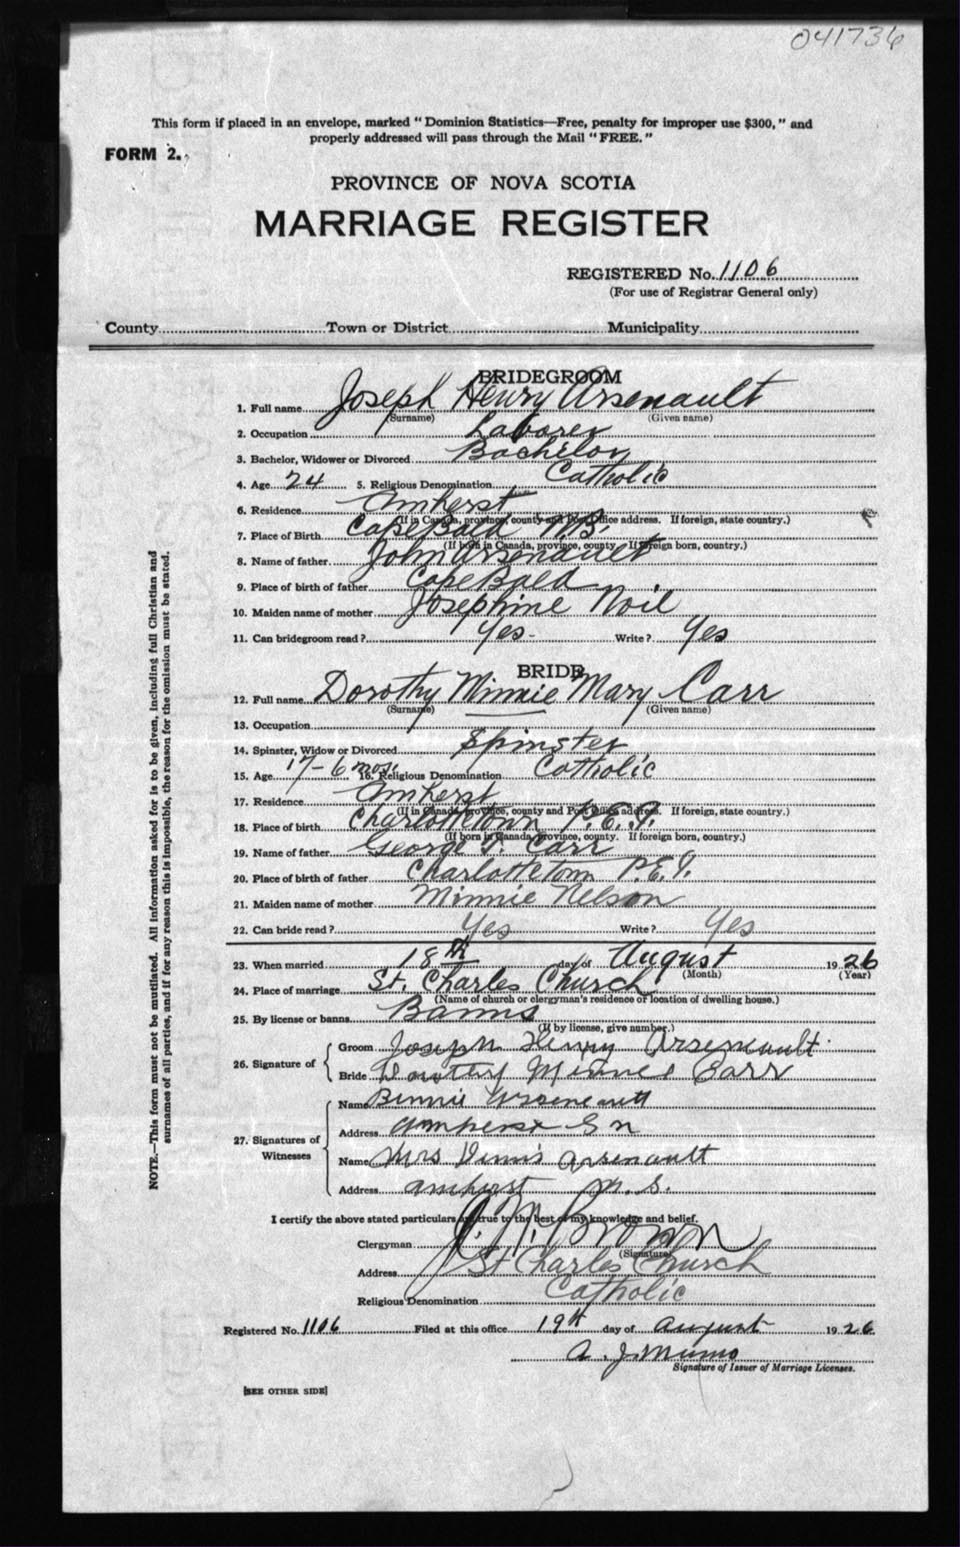 041736
This form if placed in an envelope, marked "Dominion Statistics—Free, penalty for improper use $300," and
properly addressed will pass through the Mail "FREE."
FORM 2.
PROVINCE OF NOVA SCOTIA
MARRIAGE REGISTER
REGISTERED No. 1106
(For use of Registrar General only)
County Town or District Municipality
BRIDEGROOM
1. Full name Joseph Henry Arsenault
(Surname) (Given name)
2. Occupation Laborer
3. Bachelor, Widower or Divorced Bachelor
4. Age 24 5. Religious Denomination Catholic
6. Residence Amherst
(If in Canada, province, county and Post Office address. If foreign, state country.)
7. Place of Birth Cape Bald N.B.
(If born in Canada, province, county. If foreign born, country.)
8. Name of father John Arsenault
9. Place of birth of father Cape Bald
10. Maiden name of mother Josephine Noil
11. Can bridegroom read? Yes - Write? Yes
BRIDE
12. Full name Dorothy Minnie Mary Carr
(Surname) (Given name)
13. Occupation
14. Spinster, Widow or Divorced Spinster
15. Age 17-6 mos. 16. Religious Denomination Catholic
17. Residence Amherst
(If in Canada, province, county and Post Office address. If foreign, state country.)
18. Place of birth Charlottetown P.E.I.
(If born in Canada, province, county. If foreign born, country.)
19. Name of father George Carr
20. Place of birth of father Charlottetom P.E.I.
21. Maiden name of mother Minnie Nelson
22. Can bride read? Yes Write? Yes
23. When married 18th day of August 1926
(Month) (Year)
24. Place of marriage St. Charles Church
(Name of church or clergyman's residence or location of dwelling house.)
25. By license or banns Banns
(If by license, give number.)
26. Signature of Groom Joseph Henry Arseneault
Bride Dorothy Minnie Carr
27. Signatures of Witnesses Name Bennie Arseneault
Address Amherst
Name Mrs Dennis Arsenault
Address Amherst N.S.
I certify the above stated particulars are true to the best of my knowledge and belief.
Clergyman J. M. Brown
(Signature)
Address St Charles Church
Religious Denomination Catholic
Registered No. 1106 Filed at this office 19th day of August 1926
A. J. Munro
Signature of Issuer of Marriage Licenses.
[SEE OTHER SIDE]
NOTE.—This form must not be mutilated. All information asked for is to be given, including full Christian and
surnames of all parties, and if for any reason this is impossible, the reason for the omission must be stated.